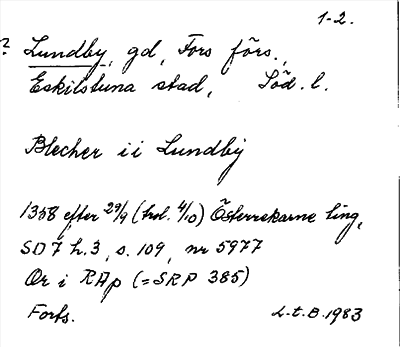 1-2.
? Lundby, gd, Fors förs.,
Eskilstuna stad, Söd. l.
Blecher ii Lundby
1358 efter 29/9 (trol. 4/10) Österrekarne ting,
SD 7 h. 3, s. 109, nr 5977
Or i RAp (= SRP 385)
Forts. L.t.B. 1983